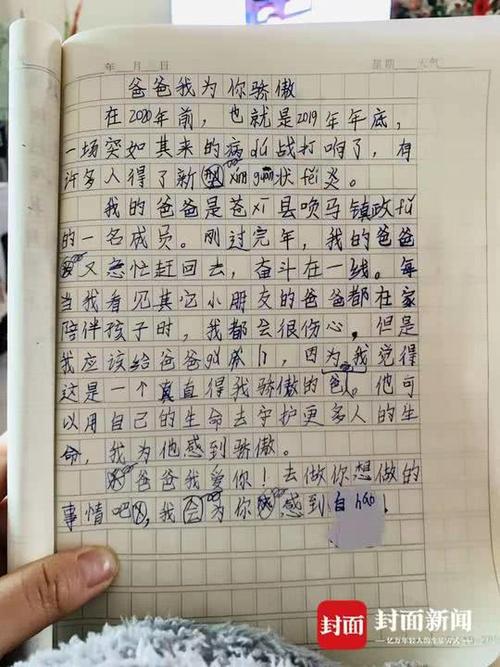 年 月 日 星期 天气
爸爸我为你骄傲
在2020年前，也就是2019年年底，
一场突如其来的病dú战打响了，有
许多人得了新xīn guān状fèi炎。
我的爸爸是苍xī县唤马镇政fǔ
的一名成员。刚过完年，我的爸爸
又急忙赶回去，奋斗在一线。每
当我看见其它小朋友的爸爸都在家
陪伴孩子时，我都会很伤心，但是
我应该给爸爸gǔ lì，因为我觉得
这是一个真直得我骄傲的爸。他可
以用自己的生命去守护更多人的生
命，我为他感到骄傲。
爸爸我爱你！去做你想做的
事情吧，我会为你感到自háo！
封面 封面新闻
亿万年轻人的生活方式